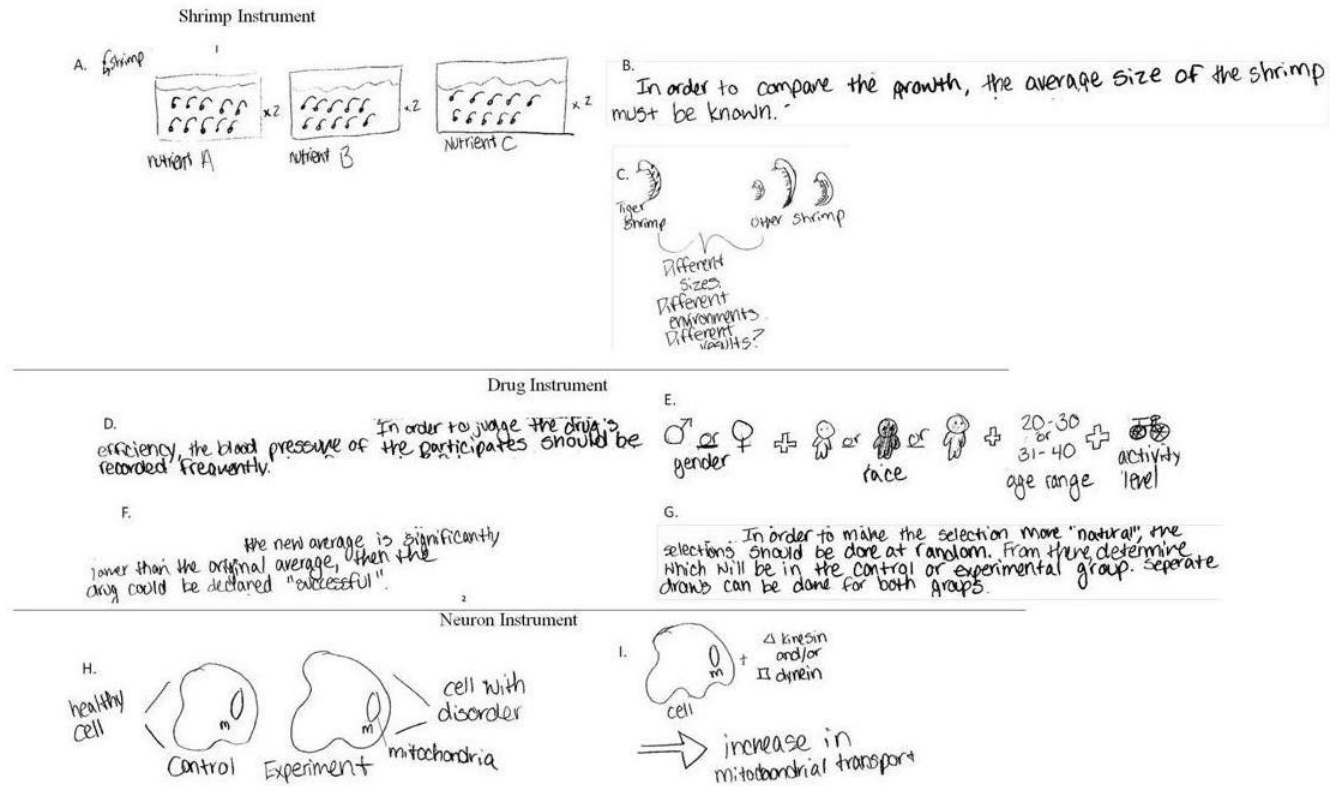 Shrimp Instrument
A. shrimp
1
x2
x2
x2
nutrient A
nutrient B
Nutrient C
B.
In order to compare the growth, the average size of the shrimp
must be known.
C.
Tiger
Shrimp
Other shrimp
Different
Sizes
Different
environments
Different
results?
Drug Instrument
D.
In order to judge the drug's
efficiency, the blood pressure of the participates should be
recorded frequently.
E.
♂ or ♀ + or or + 20-30 +
or
31-40
gender
race
age range
activity
level
F.
the new average is significantly
lower than the original average, then the
drug could be declared "successful".
G.
In order to make the selection more "natural", the
selections should be done at random. From there, determine
which will be in the control or experimental group. Seperate
draws can be done for both groups.
2
Neuron Instrument
H.
healthy
cell
m
Control
m
Experiment
cell with
disorder
mitochondria
I.
m
cell
+
Δ kinesin
and/or
dynein
⇒ increase in
mitochondrial transport